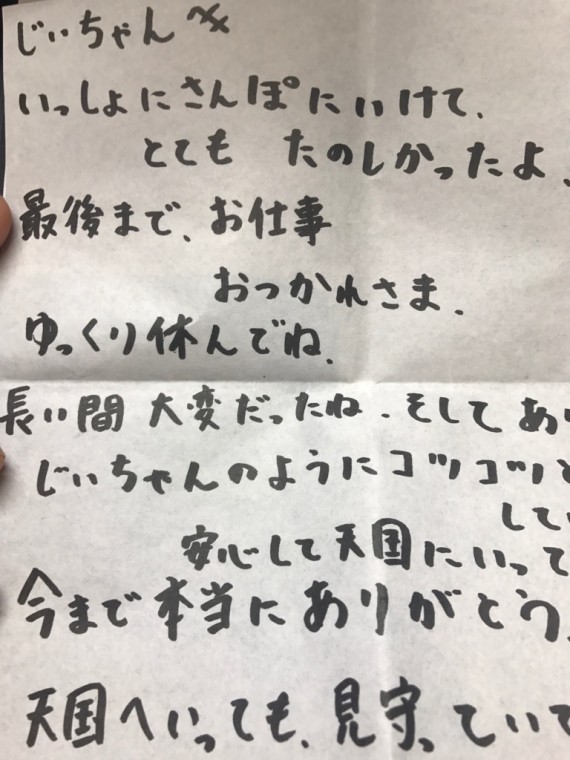 じいちゃんへ
いっしょにさんぽにいけて、
とても たのしかったよ、
最後まで、お仕事
おっかれさま.
ゆっくり休んでね.
長い間 大変だったね.そして あ
じいちゃんのようにコツコツと
して
安心して天国にいって
今まで本当にありがとう.
天国へいっても、見守っていて